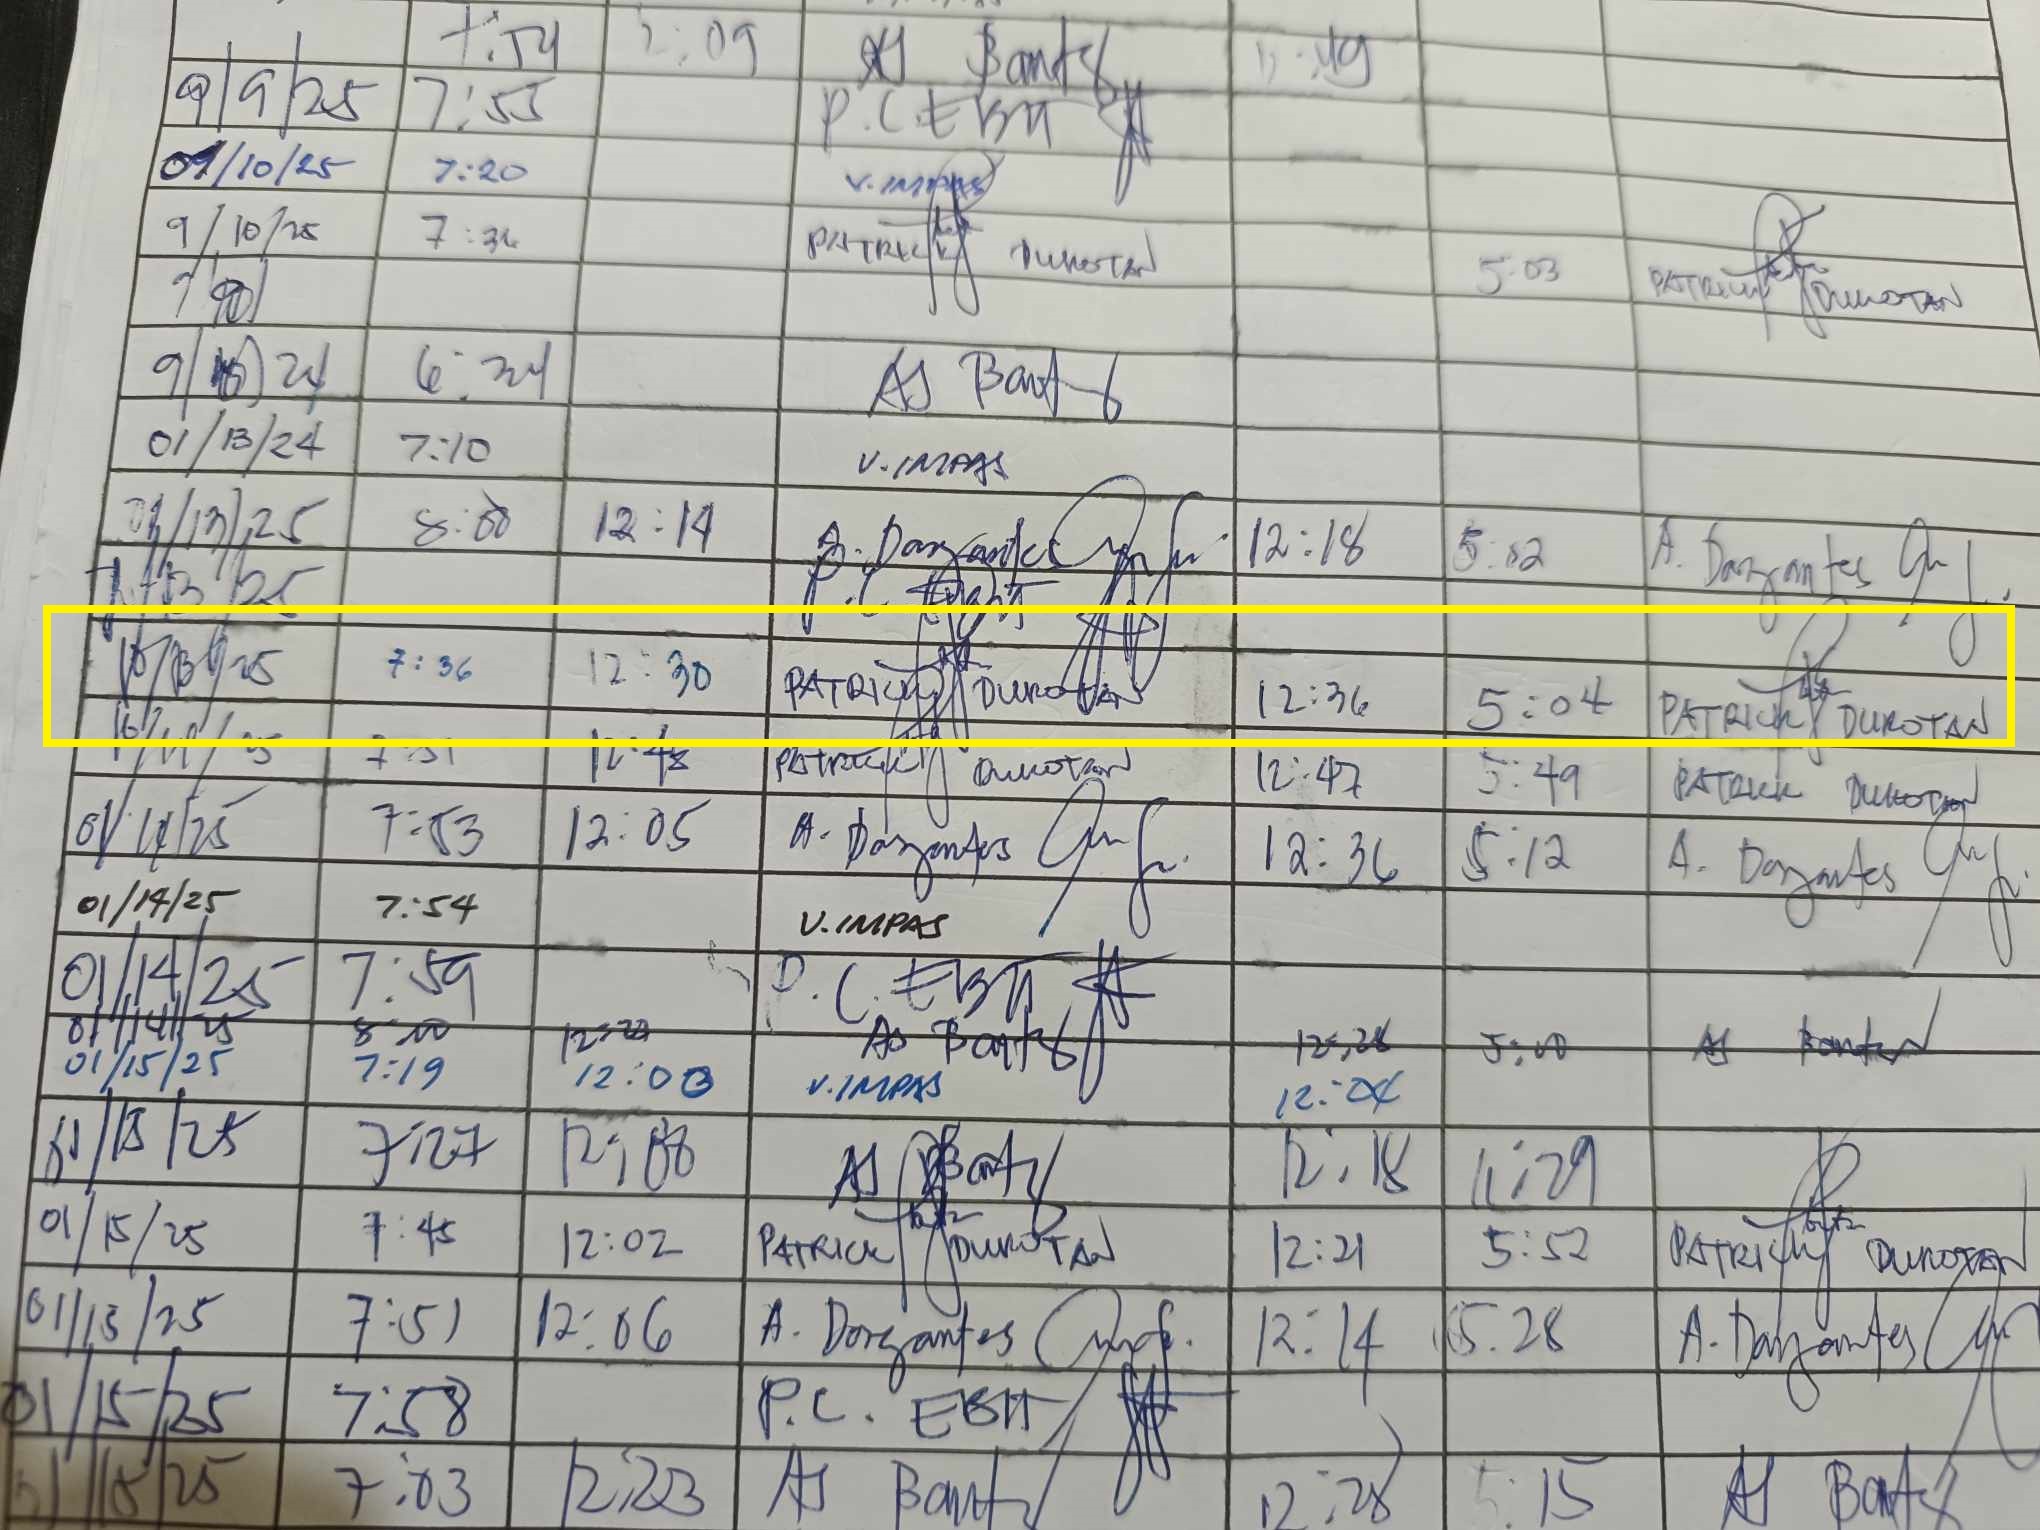 7:54 2:09 AJ Bantz
9/9/25 7:55 P.C. EBIT
09/10/25 7:20 V. IMPAS
9/10/25 7:36 PATRICK DUROTAN 5:03 PATRICK DUROTAN
9/ 24 6:34 AJ Bantz
01/13/24 7:10 V. IMPAS
01/13/25 8:00 12:14 A. Dorzantes 12:18 5:02 A. Dorzantes
13/25 P.C. EBIT
13/25 7:36 12:30 PATRICK DUROTAN 12:36 5:04 PATRICK DUROTAN
7:51 12:43 PATRICK DUROTAN 12:47 5:49 PATRICK DUROTAN
01/14/25 7:53 12:05 A. Dorzantes 12:36 5:12 A. Dorzantes
01/14/25 7:54 V. IMPAS
01/14/25 7:59 P.C. EBIT
01/14/25 8:00 AJ Bantz 12:28 5:00 AJ
01/15/25 7:19 12:03 V. IMPAS 12:04
01/15/25 7:27 12:08 AJ Bantz 12:18 11:29
01/15/25 7:45 12:02 PATRICK DUROTAN 12:21 5:52 PATRICK DUROTAN
01/15/25 7:51 12:06 A. Dorzantes 12:14 5:28 A. Dorzantes
01/15/25 7:58 P.C. EBIT
7:03 12:23 AJ Bantz 12:28 5:15 AJ Bantz